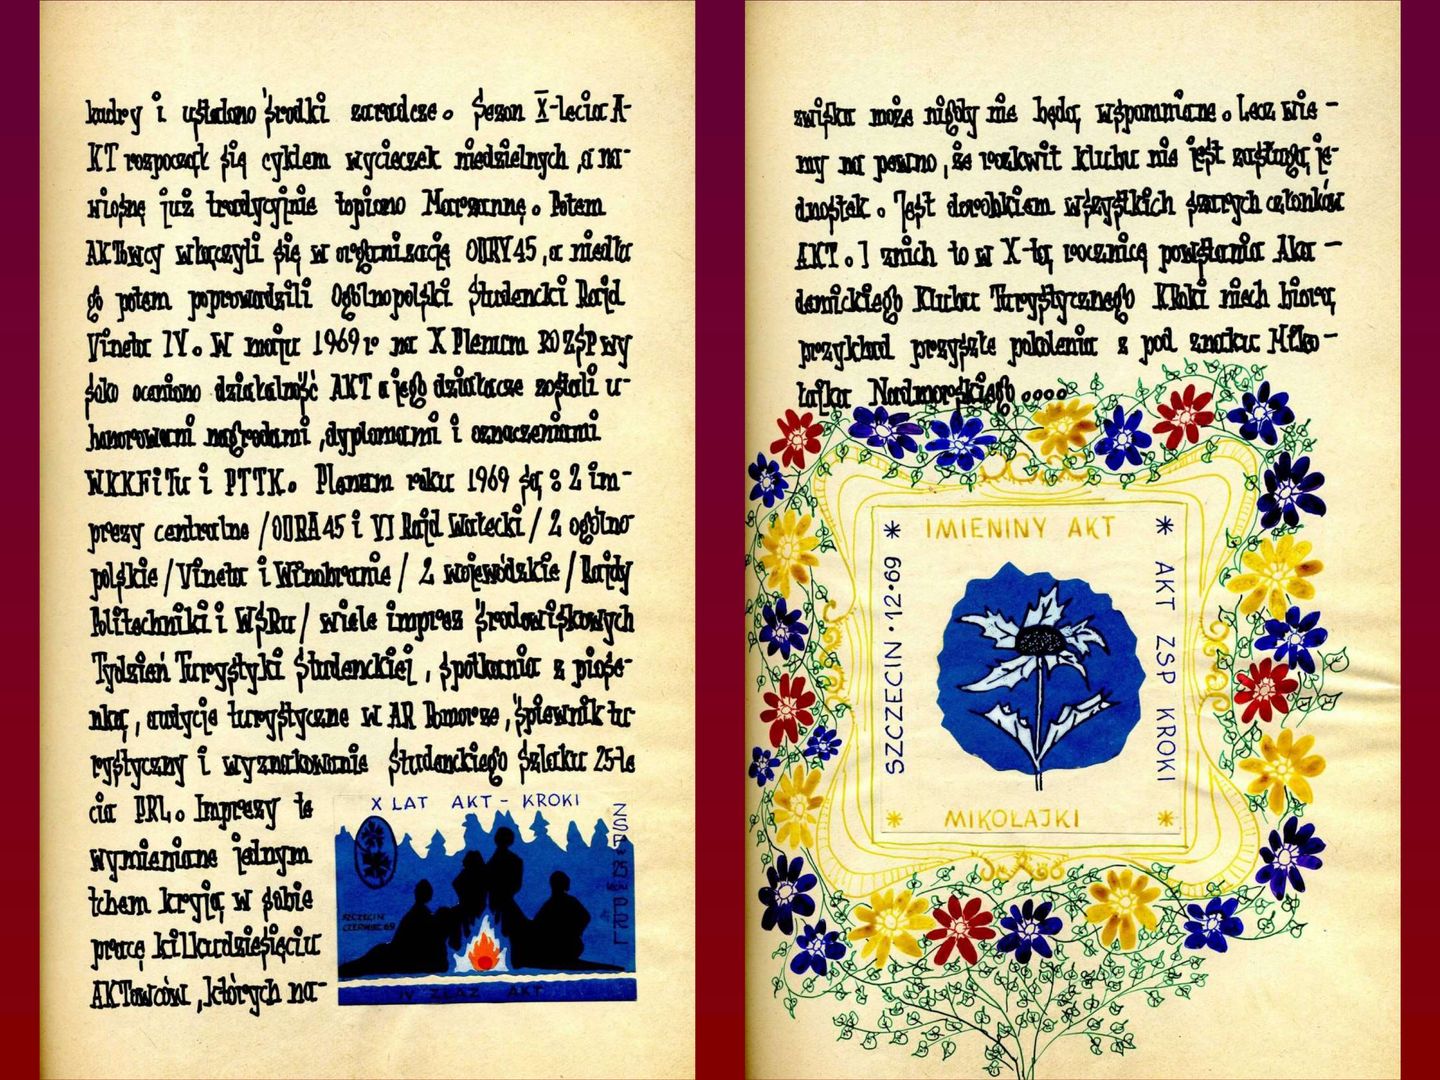 kadry i ustalono środki zaradcze. Sezon X-lecia A-
KT rozpoczął się cyklem wycieczek niedzielnych, a na-
wiosnę już tradycyjnie topiono Marzannę. Potem
AKTowcy włączyli się w organizację ODRY 45, a niedłu
go potem poprowadzili Ogólnopolski Studencki Rajd
Vineta IV. W maju 1969 r na X Plenum RO ZSP wy
soko oceniono działalność AKT a jego działacze zostali u-
honorowani nagrodami, dyplomami i oznaczeniami
WKKFiTu i PTTK. Plenum roku 1969 są: 2 im-
prezy centralne /ODRA 45 i VI Rajd Wałecki/ 2 ogólno
polskie /Vineta i Winobranie/ 2 wojewódzkie /Rajdy
Politechniki i WSRu/ wiele imprez środowiskowych
Tydzień Turystyki Studenckiej, spotkania z piose-
nką, audycje turystyczne w AR Pomorze, śpiewnik tu
rystyczny i wyznakowanie Studenckiego Szlaku 25-le
cia PRL. Imprezy te
wymieniane jednym
tchem kryją w sobie
pracę kilkudziesięciu
AKTowców, których na-
X LAT AKT - KROKI
SZCZECIN
CZERWIEC 69
IV ZLAZ AKT
zwiska może nigdy nie będą wspomniane. Lecz wie-
my na pewno, że rozkwit klubu nie jest zasługą je-
dnostek. Jest dorobkiem wszystkich szarych członków
AKT. I znich to w X-tą rocznicę powstania Aka-
demickiego Klubu Turystycznego Kroki niech biorą
przykład przyszłe pokolenia z pod znaku Miko-
łajka Nadmorskiego....
IMIENINY AKT
SZCZECIN • 12 • 69
AKT ZSP KROKI
MIKOŁAJKI